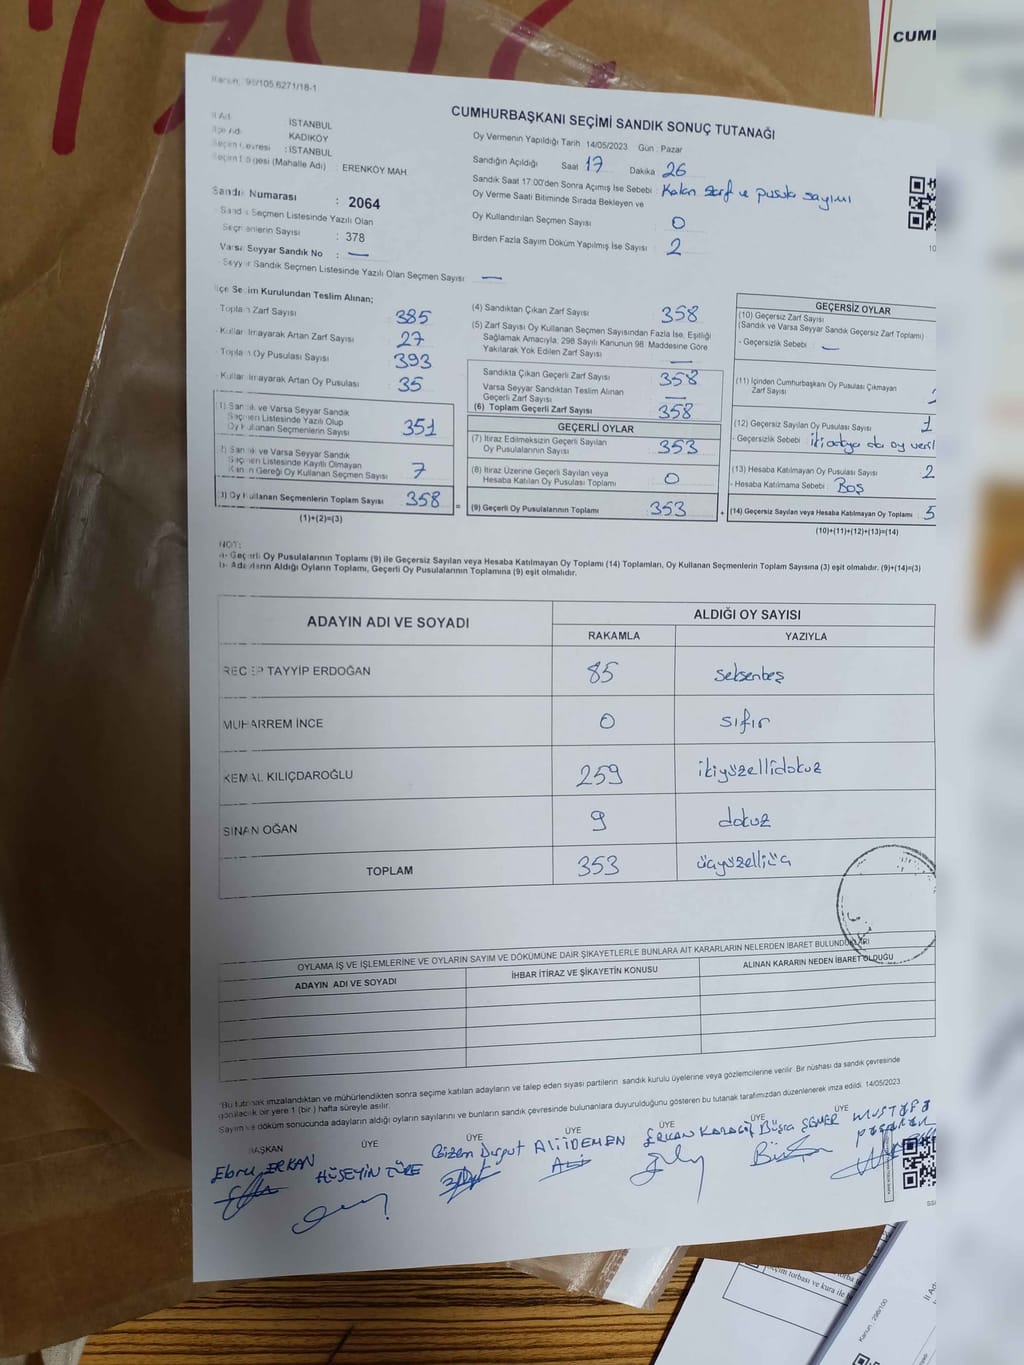 CUMHURBAŞKANI SEÇİMİ SANDIK SONUÇ TUTANAĞI
İSTANBUL
KADIKÖY
: İSTANBUL
(Mahalle Adı) : ERENKÖY MAH
Oy Vermenin Yapıldığı Tarih 14/05/2023 Gün : Pazar
Sandığın Açıldığı Saat 17 Dakika 26
Sandık Saat 17:00'den Sonra Açımış İse Sebebi : Kalan zarf ve pusula sayımı
Oy Verme Saati Bitiminde Sırada Bekleyen ve
Oy Kullandırılan Seçmen Sayısı 0
Birden Fazla Sayım Döküm Yapılmış İse Sayısı 2
Sandık Numarası : 2064
Sandık Seçmen Listesinde Yazılı Olan
Seçmenlerin Sayısı : 378
Varsa Seyyar Sandık No : —
Seyyar Sandık Seçmen Listesinde Yazılı Olan Seçmen Sayısı —
İlçe Seçim Kurulundan Teslim Alınan;
Toplam Zarf Sayısı 385
Kullanılmayarak Artan Zarf Sayısı 27
Toplam Oy Pusulası Sayısı 393
Kullanılmayarak Artan Oy Pusulası 35
1) Sandık ve Varsa Seyyar Sandık
Seçmen Listesinde Yazılı Olup
Oy Kullanan Seçmenlerin Sayısı 351
2) Sandık ve Varsa Seyyar Sandık
Seçmen Listesinde Kayıtlı Olmayan
Kanun Gereği Oy Kullanan Seçmen Sayısı 7
3) Oy Kullanan Seçmenlerin Toplam Sayısı 358
(1)+(2)=(3)
(4) Sandıktan Çıkan Zarf Sayısı 358
(5) Zarf Sayısı Oy Kullanan Seçmen Sayısından Fazla İse, Eşitliği
Sağlamak Amacıyla, 298 Sayılı Kanunun 98. Maddesine Göre
Yakılarak Yok Edilen Zarf Sayısı —
Sandıkta Çıkan Geçerli Zarf Sayısı 358
Varsa Seyyar Sandıktan Teslim Alınan
Geçerli Zarf Sayısı —
(6) Toplam Geçerli Zarf Sayısı 358
GEÇERLİ OYLAR
(7) İtiraz Edilmeksizin Geçerli Sayılan
Oy Pusulalarının Sayısı 353
(8) İtiraz Üzerine Geçerli Sayılan veya
Hesaba Katılan Oy Pusulası Toplamı 0
(9) Geçerli Oy Pusulalarının Toplamı 353
GEÇERSİZ OYLAR
(10) Geçersiz Zarf Sayısı
(Sandık ve Varsa Seyyar Sandık Geçersiz Zarf Toplamı)
- Geçersizlik Sebebi : —
(11) İçinden Cumhurbaşkanı Oy Pusulası Çıkmayan
Zarf Sayısı
(12) Geçersiz Sayılan Oy Pusulası Sayısı 1
- Geçersizlik Sebebi : iki adaya da oy veril
(13) Hesaba Katılmayan Oy Pusulası Sayısı 2
- Hesaba Katılmama Sebebi : Boş
(14) Geçersiz Sayılan veya Hesaba Katılmayan Oy Toplamı 5
(10)+(11)+(12)+(13)=(14)
NOT:
a- Geçerli Oy Pusulalarının Toplamı (9) ile Geçersiz Sayılan veya Hesaba Katılmayan Oy Toplamı (14) Toplamları, Oy Kullanan Seçmenlerin Toplam Sayısına (3) eşit olmalıdır. (9)+(14)=(3)
b- Adayların Aldığı Oyların Toplamı, Geçerli Oy Pusulalarının Toplamına (9) eşit olmalıdır.
ADAYIN ADI VE SOYADI ALDIĞI OY SAYISI
RAKAMLA YAZIYLA
RECEP TAYYİP ERDOĞAN 85 seksenbeş
MUHARREM İNCE 0 sıfır
KEMAL KILIÇDAROĞLU 259 ikiyüzellidokuz
SİNAN OĞAN 9 dokuz
TOPLAM 353 üçyüzelliüç
OYLAMA İŞ VE İŞLEMLERİNE VE OYLARIN SAYIM VE DÖKÜMÜNE DAİR ŞİKAYETLERLE BUNLARA AİT KARARLARIN NELERDEN İBARET BULUNDUKLARI
ADAYIN ADI VE SOYADI İHBAR İTİRAZ VE ŞİKAYETİN KONUSU ALINAN KARARIN NEDEN İBARET OLDUĞU
Bu tutanak imzalandıktan ve mühürlendikten sonra seçime katılan adayların ve talep eden siyasi partilerin sandık kurulu üyelerine veya gözlemcilerine verilir. Bir nüshası da sandık çevresinde
görülecek bir yere 1 (bir) hafta süreyle asılır.
Sayım ve döküm sonucunda adayların aldığı oyların sayılarını ve bunların sandık çevresinde bulunanlara duyurulduğunu gösteren bu tutanak tarafımızdan düzenlenerek imza edildi. 14/05/2023
BAŞKAN ÜYE ÜYE ÜYE ÜYE ÜYE
Ebru ERKAN HÜSEYİN TÜRE Gizem Durgut ALİ İDEMEN ERKAN Büşra ŞENER MUSTAFA
CUMH